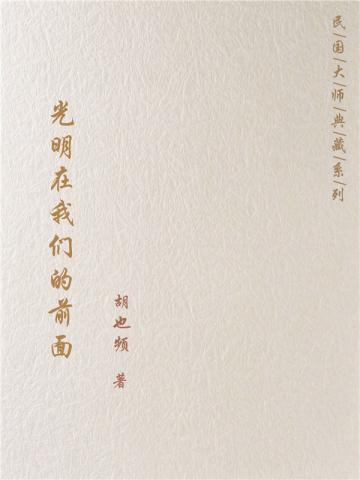 民|国|大|师|典|藏|系|列
光明在我们的前面
胡也频 著